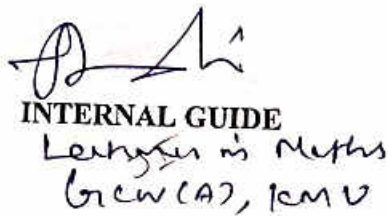 INTERNAL GUIDE
Lecturer in Maths
GCW(A), KMV